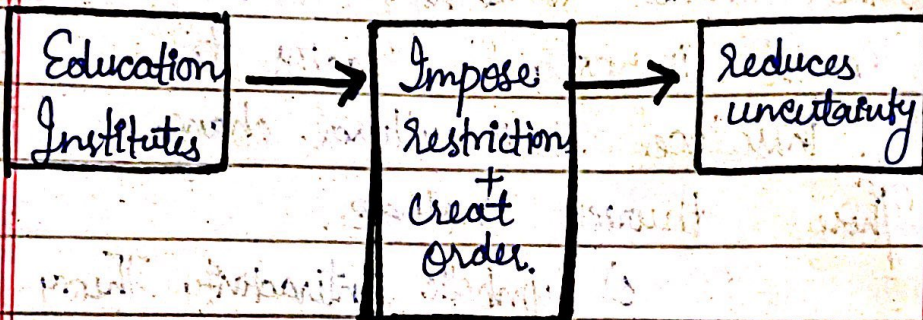 Education
Institutes
Impose
restriction
+
Creat
order.
reduces
uncertainty